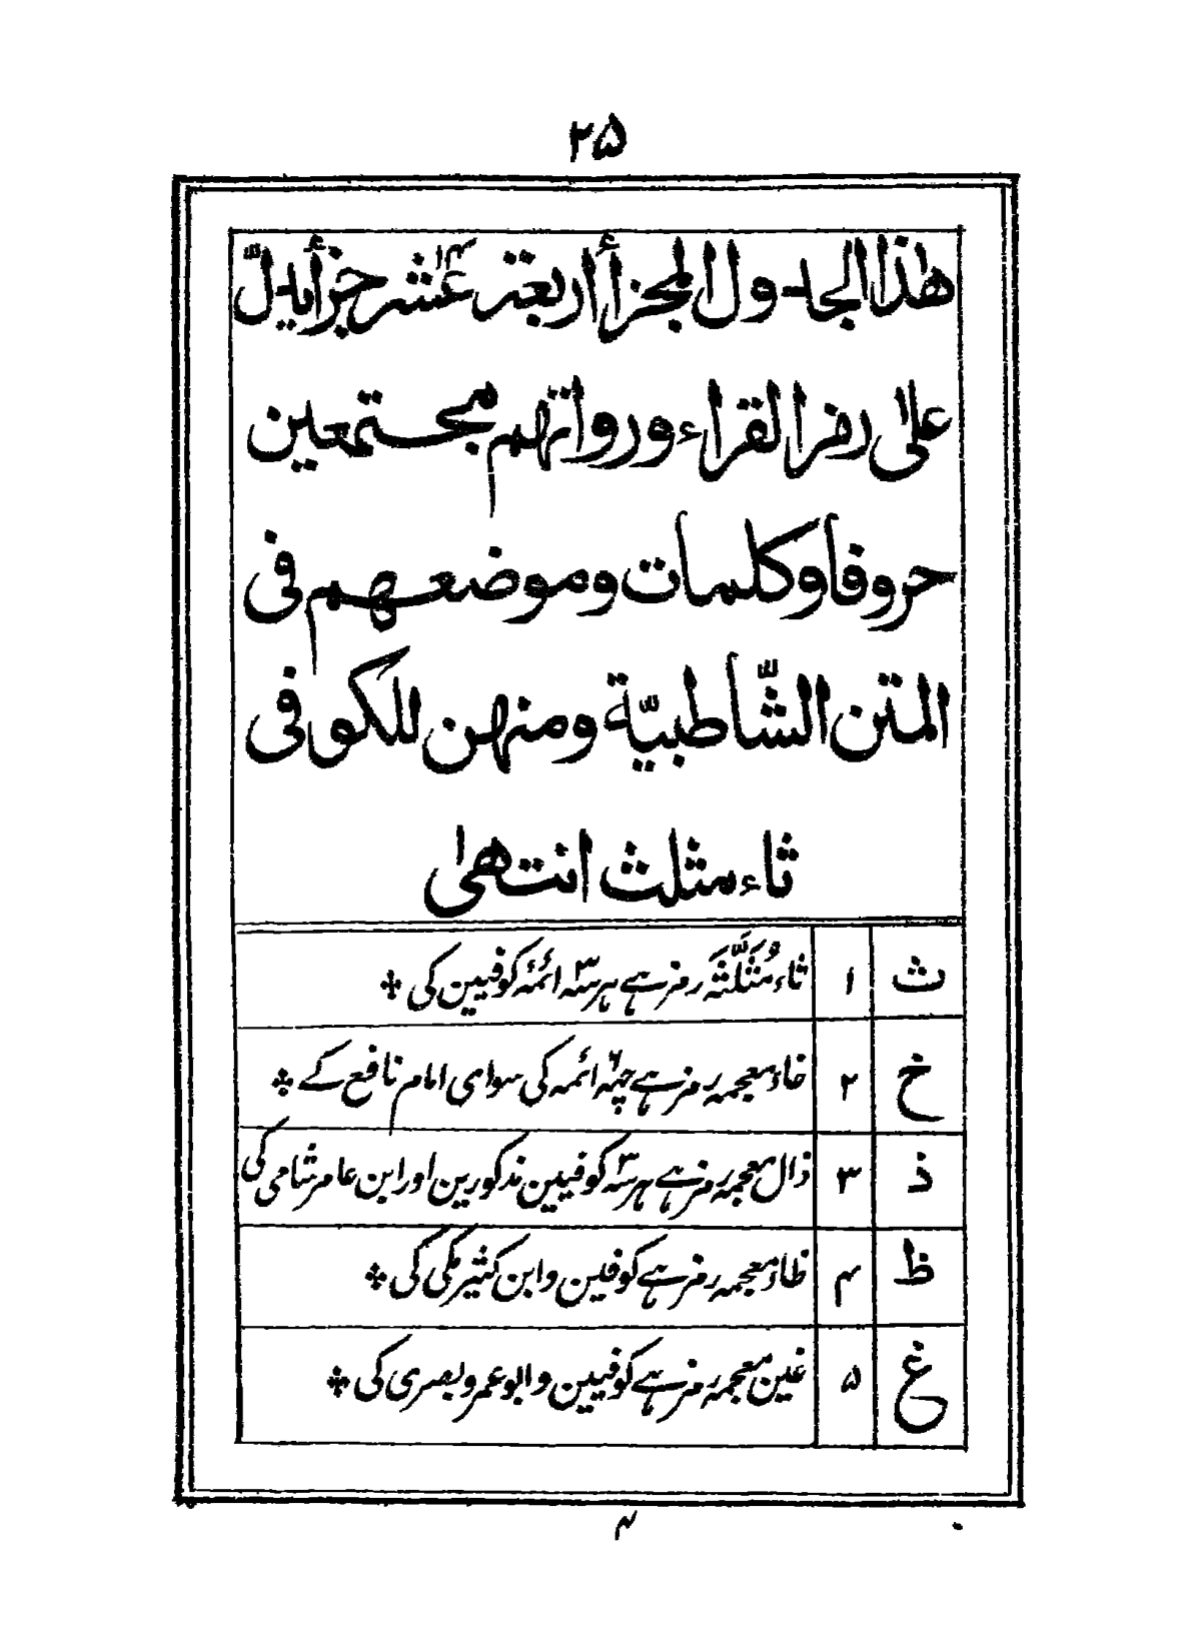 ۲۵
هٰذا الجدول المجزأ أربعة عشر ۱۴ جزأ يدلّ
علىٰ رمز القراء ورواتهم مجتمعين
حروفا وكلمات وموضعهم فى
المتن الشّاطبيّة ومنهن للكوفى
ثاء مثلث انتهىٰ
ث ۱ ثاء مُثَلَّثَہ رمز ہے ہر سہ ۳ ائمۂ کوفیین کی
خ ۲ خاء معجمہ رمز ہے چہہ ۶ ائمہ کی سوای امام نافع کے
ذ ۳ ذال معجمہ رمز ہے ہر سہ ۳ کوفیین مذکورین اور ابن عامر شامی کی
ظ ۴ ظاء معجمہ رمز ہے کوفیین و ابن کثیر مکی کی
غ ۵ غین معجمہ رمز ہے کوفیین و ابو عمرو بصری کی
۴